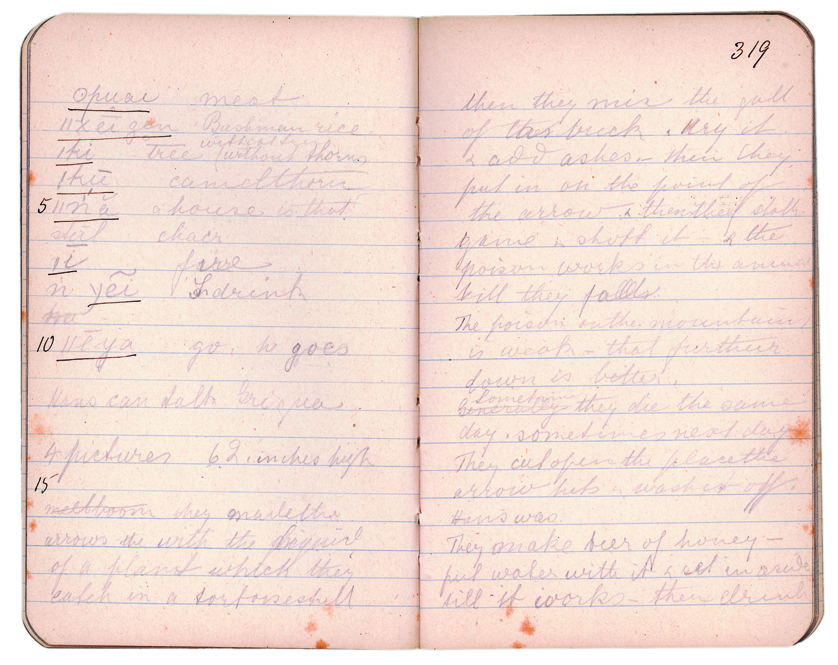 opuai meat
ǁxēi gen Bushman rice
ǀhi tree without (without thorns
ǀkū camelthorn
5 ǁṅa a house is that
stul chair
ǀi fire
n yēi I drink
10 ǁēya go. he goes
Hans can talk Griqua.
4 pictures 62. inches high
15
they make the
arrows the with the liquid
of a plant which they
catch in a tortoiseshell
319
then they mix the gall
of this buck. dry it
& add ashes - then they
put in on the point of
the arrow. & then they stalk
game & shott it - & the
poison works in the animal
till they falls.
The poison on the mountains
is weak - that further
down is better.
Sometimes
Generally they die the same
day. sometimes next day
They cut open the place the
arrow hits & wash it off.
Hans was.
They make beer of honey -
put water with it & set in aside
till it works - then drink